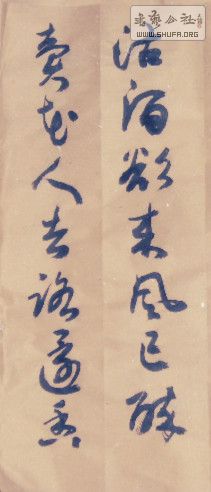 書藝公社
WWW.SHUFA.ORG
沽酒欲來風已醉
賣花人去路還香